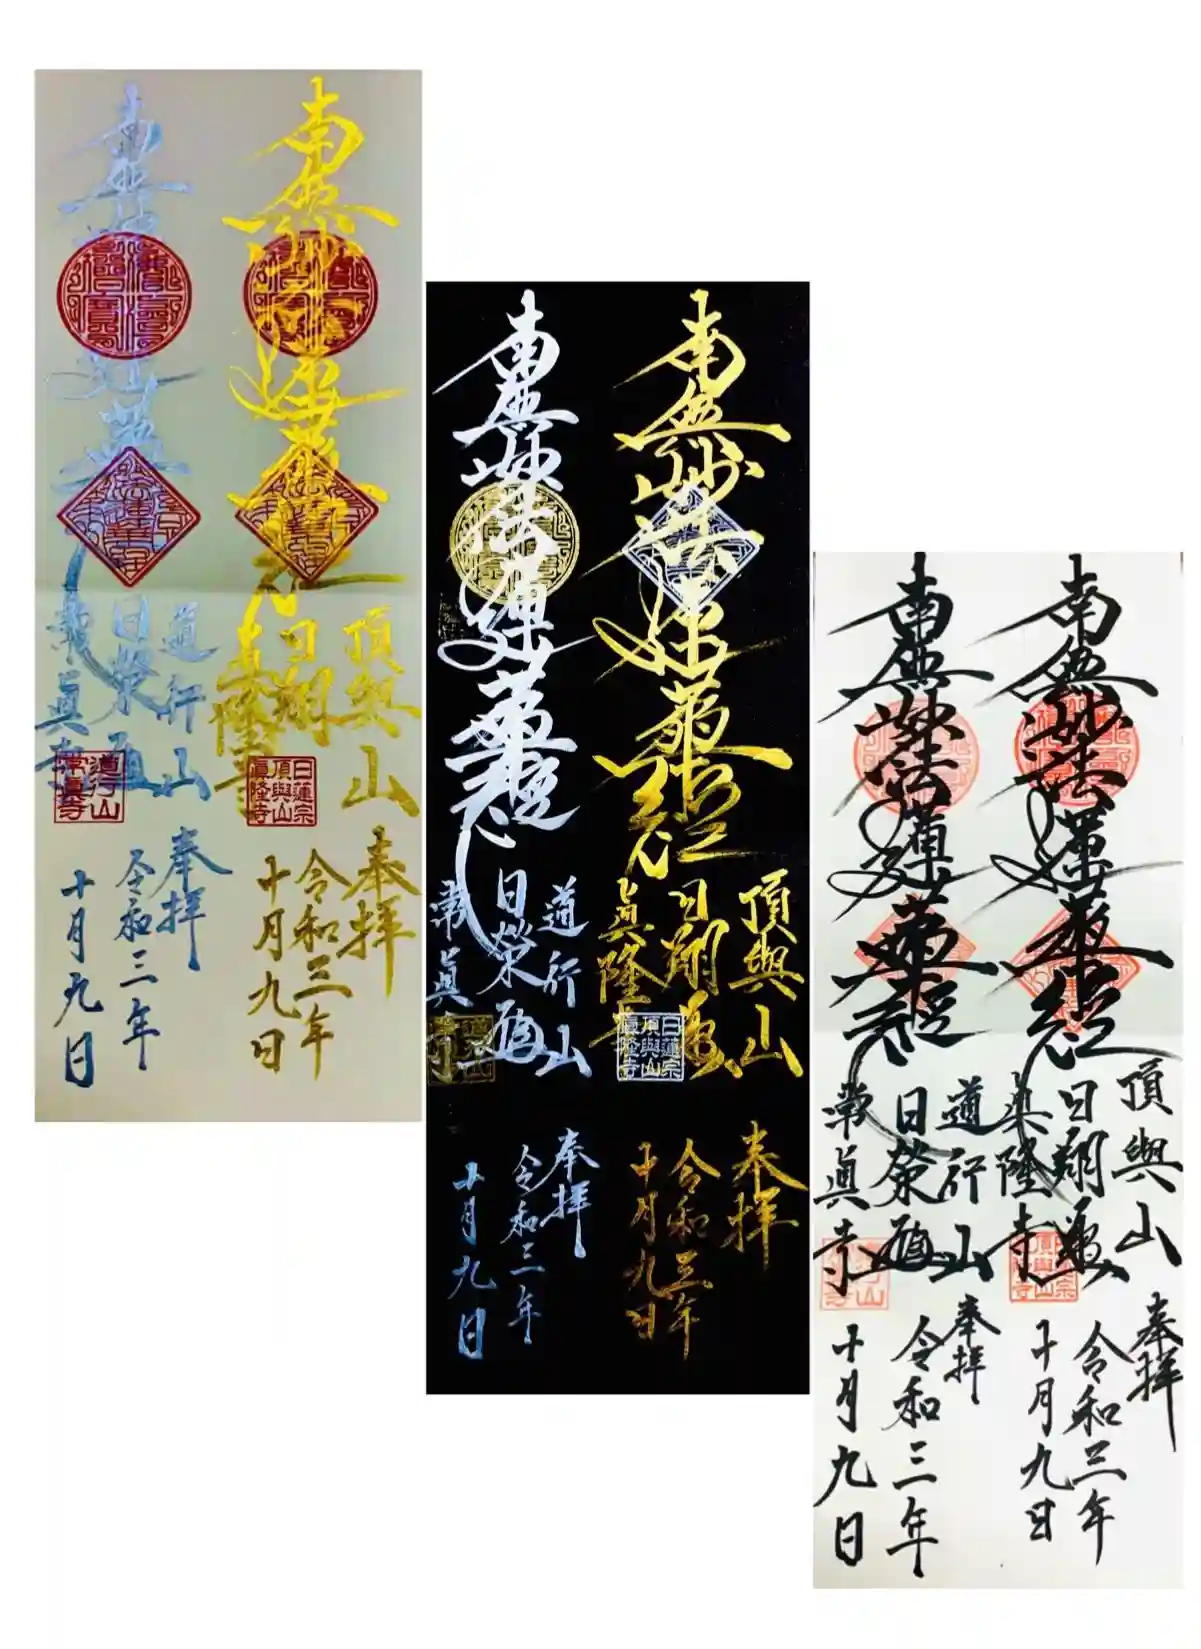 南無妙法蓮華経
頂與山
日翔
眞隆寺
日蓮宗
頂與山
眞隆寺
奉拝
令和三年
十月九日
南無妙法蓮華経
道行山
日榮
常眞寺
道行山
常眞寺
奉拝
令和三年
十月九日
南無妙法蓮華経
頂與山
日翔
眞隆寺
日蓮宗
頂與山
眞隆寺
奉拝
令和三年
十月九日
南無妙法蓮華経
道行山
日榮
常眞寺
奉拝
令和三年
十月九日
南無妙法蓮華経
頂與山
日翔
眞隆寺
奉拝
令和三年
十月九日
南無妙法蓮華経
道行山
日榮
常眞寺
奉拝
令和三年
十月九日